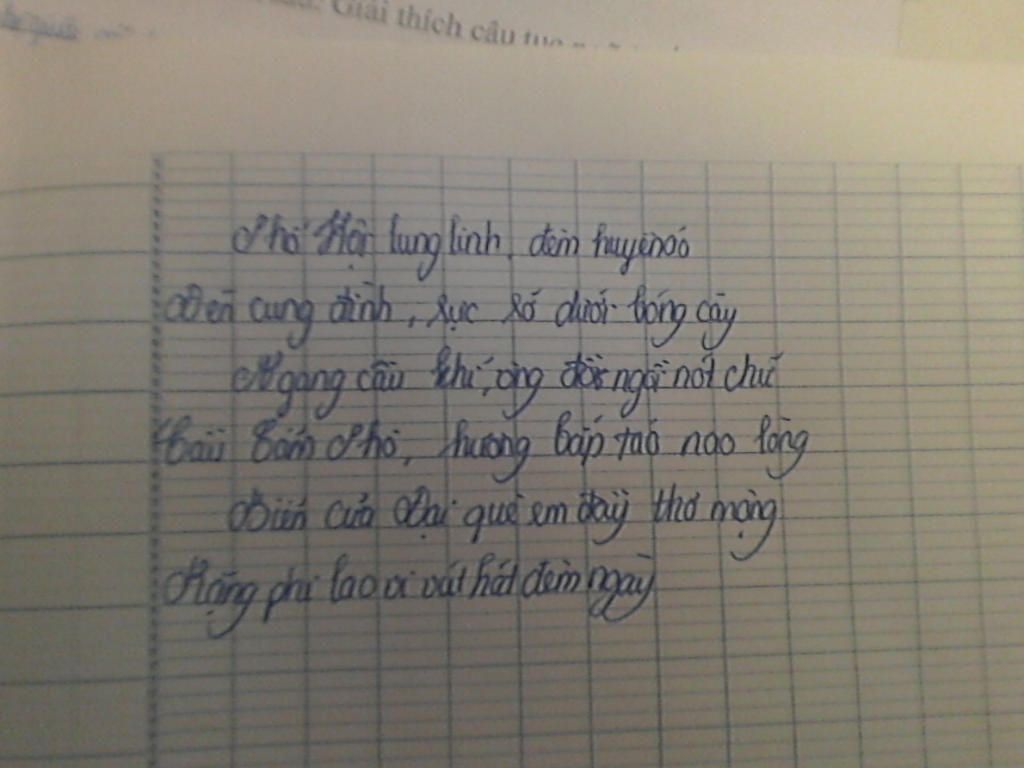 Giải thích câu tục
Phố Hội lung linh, đêm huyền ảo
Đèn cung đình, rực rỡ dưới bóng cây
Ngang cầu khỉ, ông đồ ngồi nơi chữ
Cẩm Phô, hương bắp nao lòng
Biển cửa Đại quê em đầy thơ mộng
Hàng phi lao vi vút hát đêm ngày